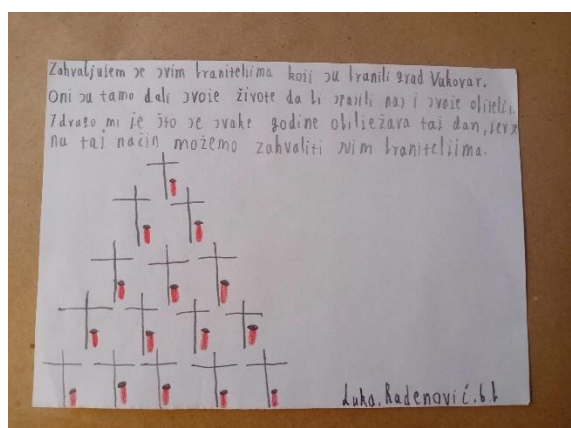 Zahvaljujem se svim braniteljima koji su branili grad Vukovar.
Oni su tamo dali svoje živote da bi spasili nas i svoje obitelji.
I drago mi je što se svake godine obilježava taj dan, jer
na taj način možemo zahvaliti svim braniteljima.
Luka. Radenović. 6.b